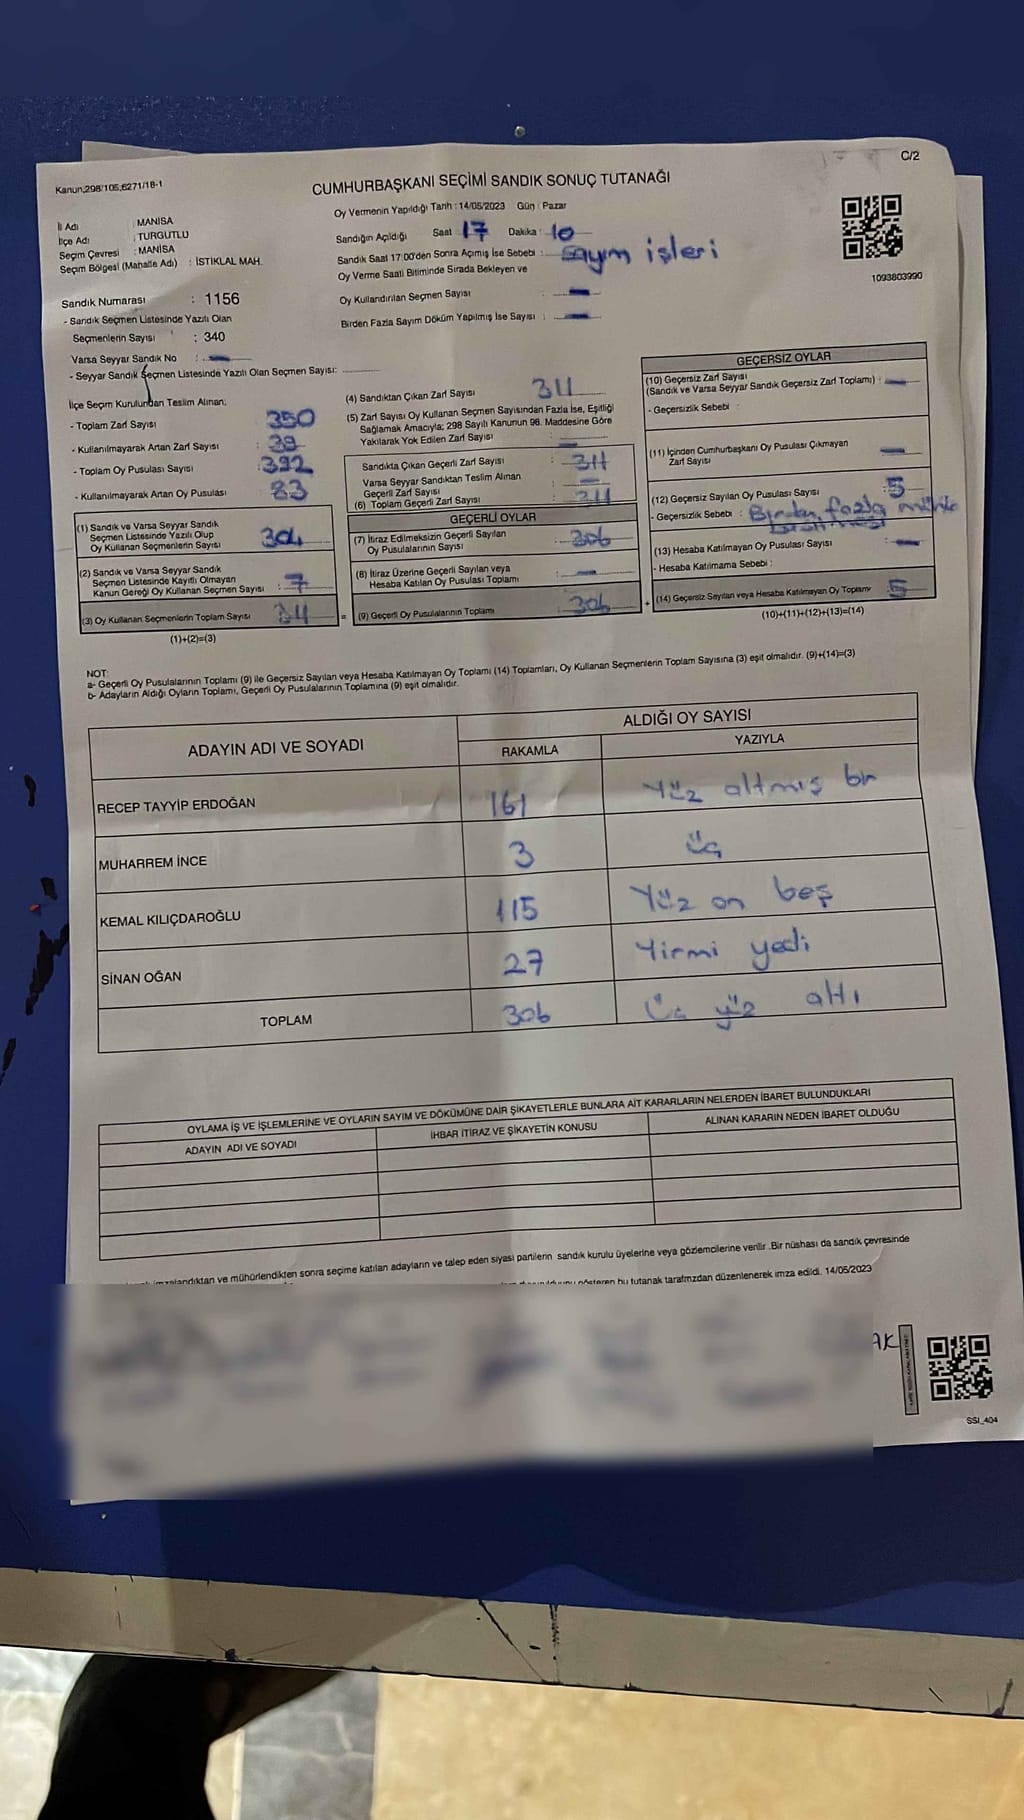 C/2
Kanun;298/105,6271/18-1
CUMHURBAŞKANI SEÇİMİ SANDIK SONUÇ TUTANAĞI
İl Adı : MANİSA
İlçe Adı : TURGUTLU
Seçim Çevresi : MANİSA
Seçim Bölgesi (Mahalle Adı) : İSTİKLAL MAH.
Oy Vermenin Yapıldığı Tarih : 14/05/2023 Gün : Pazar
Sandığın Açıldığı Saat 17 Dakika : 10
Sandık Saat 17:00'den Sonra Açımış İse Sebebi : Sayım işleri
Oy Verme Saati Bitiminde Sırada Bekleyen ve
Oy Kullandırılan Seçmen Sayısı : —
Birden Fazla Sayım Döküm Yapılmış İse Sayısı : —
1093803990
Sandık Numarası : 1156
- Sandık Seçmen Listesinde Yazılı Olan
Seçmenlerin Sayısı : 340
Varsa Seyyar Sandık No : —
- Seyyar Sandık Seçmen Listesinde Yazılı Olan Seçmen Sayısı:
İlçe Seçim Kurulundan Teslim Alınan;
- Toplam Zarf Sayısı : 350
- Kullanılmayarak Artan Zarf Sayısı : 39
- Toplam Oy Pusulası Sayısı : 392
- Kullanılmayarak Artan Oy Pusulası : 83
(1) Sandık ve Varsa Seyyar Sandık
Seçmen Listesinde Yazılı Olup
Oy Kullanan Seçmenlerin Sayısı : 304
(2) Sandık ve Varsa Seyyar Sandık
Seçmen Listesinde Kayıtlı Olmayan
Kanun Gereği Oy Kullanan Seçmen Sayısı : 7
(3) Oy Kullanan Seçmenlerin Toplam Sayısı 311
(1)+(2)=(3)
(4) Sandıktan Çıkan Zarf Sayısı 311
(5) Zarf Sayısı Oy Kullanan Seçmen Sayısından Fazla İse, Eşitliği
Sağlamak Amacıyla; 298 Sayılı Kanunun 98. Maddesine Göre
Yakılarak Yok Edilen Zarf Sayısı : —
Sandıkta Çıkan Geçerli Zarf Sayısı : 311
Varsa Seyyar Sandıktan Teslim Alınan
Geçerli Zarf Sayısı : —
(6) Toplam Geçerli Zarf Sayısı : 311
GEÇERLİ OYLAR
(7) İtiraz Edilmeksizin Geçerli Sayılan
Oy Pusulalarının Sayısı : 306
(8) İtiraz Üzerine Geçerli Sayılan veya
Hesaba Katılan Oy Pusulası Toplamı : —
= (9) Geçerli Oy Pusulalarının Toplamı : 306
GEÇERSİZ OYLAR
(10) Geçersiz Zarf Sayısı
(Sandık ve Varsa Seyyar Sandık Geçersiz Zarf Toplamı) : —
- Geçersizlik Sebebi :
(11) İçinden Cumhurbaşkanı Oy Pusulası Çıkmayan
Zarf Sayısı : —
(12) Geçersiz Sayılan Oy Pusulası Sayısı : 5
- Geçersizlik Sebebi : Birden fazla mühür
(13) Hesaba Katılmayan Oy Pusulası Sayısı : —
- Hesaba Katılmama Sebebi :
+ (14) Geçersiz Sayılan veya Hesaba Katılmayan Oy Toplamı 5
(10)+(11)+(12)+(13)=(14)
NOT:
a- Geçerli Oy Pusulalarının Toplamı (9) ile Geçersiz Sayılan veya Hesaba Katılmayan Oy Toplamı (14) Toplamları, Oy Kullanan Seçmenlerin Toplam Sayısına (3) eşit olmalıdır. (9)+(14)=(3)
b- Adayların Aldığı Oyların Toplamı, Geçerli Oy Pusulalarının Toplamına (9) eşit olmalıdır.
ADAYIN ADI VE SOYADI
ALDIĞI OY SAYISI
RAKAMLA YAZIYLA
RECEP TAYYİP ERDOĞAN 161 Yüz altmış bir
MUHARREM İNCE 3 üç
KEMAL KILIÇDAROĞLU 115 Yüz on beş
SİNAN OĞAN 27 Yirmi yedi
TOPLAM 306 Üç yüz altı
OYLAMA İŞ VE İŞLEMLERİNE VE OYLARIN SAYIM VE DÖKÜMÜNE DAİR ŞİKAYETLERLE BUNLARA AİT KARARLARIN NELERDEN İBARET BULUNDUKLARI
ADAYIN ADI VE SOYADI İHBAR İTİRAZ VE ŞİKAYETİN KONUSU ALINAN KARARIN NEDEN İBARET OLDUĞU
imzalandıktan ve mühürlendikten sonra seçime katılan adayların ve talep eden siyasi partilerin sandık kurulu üyelerine veya gözlemcilerine verilir. Bir nüshası da sandık çevresinde
gösteren bu tutanak tarafımızdan düzenlenerek imza edildi. 14/05/2023
AK
SSI_404